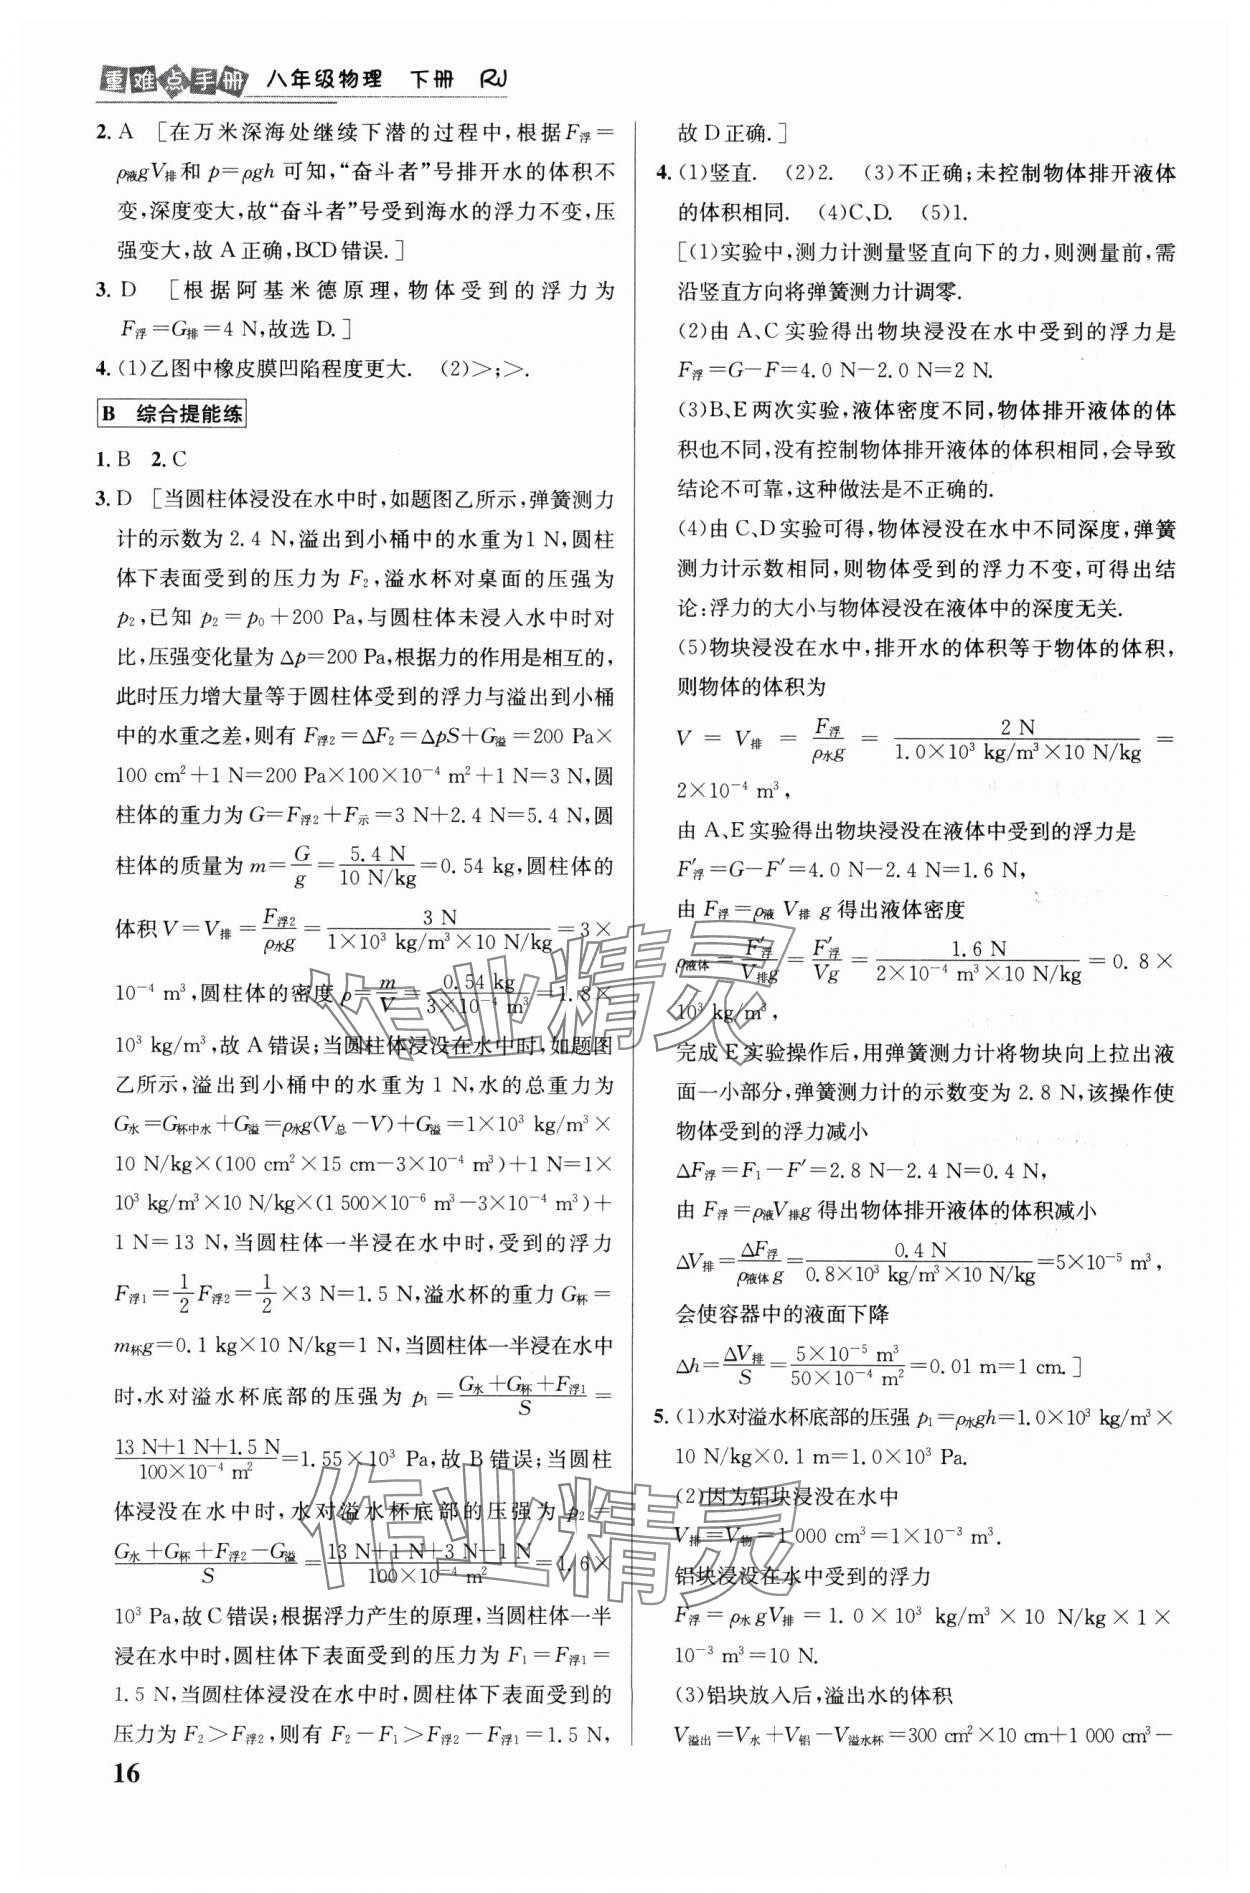 重难点手册 八年级物理 下册 RJ
2. A [在万米深海处继续下潜的过程中,根据F浮=
ρ液gV排和 p=ρgh 可知,“奋斗者”号排开水的体积不
变,深度变大,故“奋斗者”号受到海水的浮力不变,压
强变大,故 A 正确,BCD 错误.]
3. D [根据阿基米德原理,物体受到的浮力为
F浮=G排=4 N,故选 D.]
4. (1)乙图中橡皮膜凹陷程度更大. (2)>;>.
B 综合提能练
1. B 2. C
3. D [当圆柱体浸没在水中时,如题图乙所示,弹簧测力
计的示数为 2.4 N,溢出到小桶中的水重为1 N,圆柱
体下表面受到的压力为 F₂,溢水杯对桌面的压强为
p₂,已知 p₂=p₀+200 Pa,与圆柱体未浸入水中时对
比,压强变化量为 Δp=200 Pa,根据力的作用是相互的,
此时压力增大量等于圆柱体受到的浮力与溢出到小桶
中的水重之差,则有 F浮₂=ΔF₂=ΔpS+G溢=200 Pa×
100 cm²+1 N=200 Pa×100×10⁻⁴ m²+1 N=3 N,圆
柱体的重力为 G=F浮₂+F示=3 N+2.4 N=5.4 N,圆
柱体的质量为 m=G/g=5.4 N/10 N/kg=0.54 kg,圆柱体的
体积 V=V排=F浮₂/ρ水g=3 N/1×10³ kg/m³×10 N/kg=3×
10⁻⁴ m³,圆柱体的密度 ρ=m/V=0.54 kg/3×10⁻⁴ m³=1.8×
10³ kg/m³,故 A 错误;当圆柱体浸没在水中时,如题图
乙所示,溢出到小桶中的水重为 1 N,水的总重力为
G水=G杯中水+G溢=ρ水g(V总−V)+G溢=1×10³ kg/m³×
10 N/kg×(100 cm²×15 cm−3×10⁻⁴ m³)+1 N=1×
10³ kg/m³×10 N/kg×(1 500×10⁻⁶ m³−3×10⁻⁴ m³)+
1 N=13 N,当圆柱体一半浸在水中时,受到的浮力
F浮₁=1/2F浮₂=1/2×3 N=1.5 N,溢水杯的重力 G杯=
m杯g=0.1 kg×10 N/kg=1 N,当圆柱体一半浸在水中
时,水对溢水杯底部的压强为 p₁=G水+G杯+F浮₁/S=
13 N+1 N+1.5 N/100×10⁻⁴ m²=1.55×10³ Pa,故 B 错误;当圆柱
体浸没在水中时,水对溢水杯底部的压强为 p₂=
G水+G杯+F浮₂−G溢/S=13 N+1 N+3 N−1 N/100×10⁻⁴ m²=1.6×
10³ Pa,故 C 错误;根据浮力产生的原理,当圆柱体一半
浸在水中时,圆柱体下表面受到的压力为 F₁=F浮₁=
1.5 N,当圆柱体浸没在水中时,圆柱体下表面受到的
压力为 F₂>F浮₂,则有 F₂−F₁>F浮₂−F浮₁=1.5 N,
16
故 D 正确.]
4. (1)竖直. (2)2. (3)不正确;未控制物体排开液体
的体积相同. (4)C、D. (5)1.
[(1)实验中,测力计测量竖直向下的力,则测量前,需
沿竖直方向将弹簧测力计调零.
(2)由 A、C 实验得出物块浸没在水中受到的浮力是
F浮=G−F=4.0 N−2.0 N=2 N.
(3)B、E 两次实验,液体密度不同,物体排开液体的体
积也不同,没有控制物体排开液体的体积相同,会导致
结论不可靠,这种做法是不正确的.
(4)由 C、D 实验可得,物体浸没在水中不同深度,弹簧
测力计示数相同,则物体受到的浮力不变,可得出结
论:浮力的大小与物体浸没在液体中的深度无关.
(5)物块浸没在水中,排开水的体积等于物体的体积,
则物体的体积为
V = V排 = F浮/ρ水g = 2 N/1.0×10³ kg/m³×10 N/kg =
2×10⁻⁴ m³,
由 A、E 实验得出物块浸没在液体中受到的浮力是
F′浮=G−F′=4.0 N−2.4 N=1.6 N,
由 F浮=ρ液 V排 g 得出液体密度
ρ液体=F′浮/V排g=F′浮/Vg=1.6 N/2×10⁻⁴ m³×10 N/kg=0.8×
10³ kg/m³,
完成 E 实验操作后,用弹簧测力计将物块向上拉出液
面一小部分,弹簧测力计的示数变为 2.8 N,该操作使
物体受到的浮力减小
ΔF浮=F₁−F′=2.8 N−2.4 N=0.4 N,
由 F浮=ρ液V排g 得出物体排开液体的体积减小
ΔV排=ΔF浮/ρ液体g=0.4 N/0.8×10³ kg/m³×10 N/kg=5×10⁻⁵ m³,
会使容器中的液面下降
Δh=ΔV排/S=5×10⁻⁵ m³/50×10⁻⁴ m²=0.01 m=1 cm.]
5. (1)水对溢水杯底部的压强 p₁=ρ水gh=1.0×10³ kg/m³×
10 N/kg×0.1 m=1.0×10³ Pa.
(2)因为铝块浸没在水中
V排=V物=1 000 cm³=1×10⁻³ m³.
铝块浸没在水中受到的浮力
F浮=ρ水 gV排=1.0×10³ kg/m³×10 N/kg×1×
10⁻³ m³=10 N.
(3)铝块放入后,溢出水的体积
V溢出=V水+V铝−V溢水杯=300 cm²×10 cm+1 000 cm³−
作业精灵
作业精灵